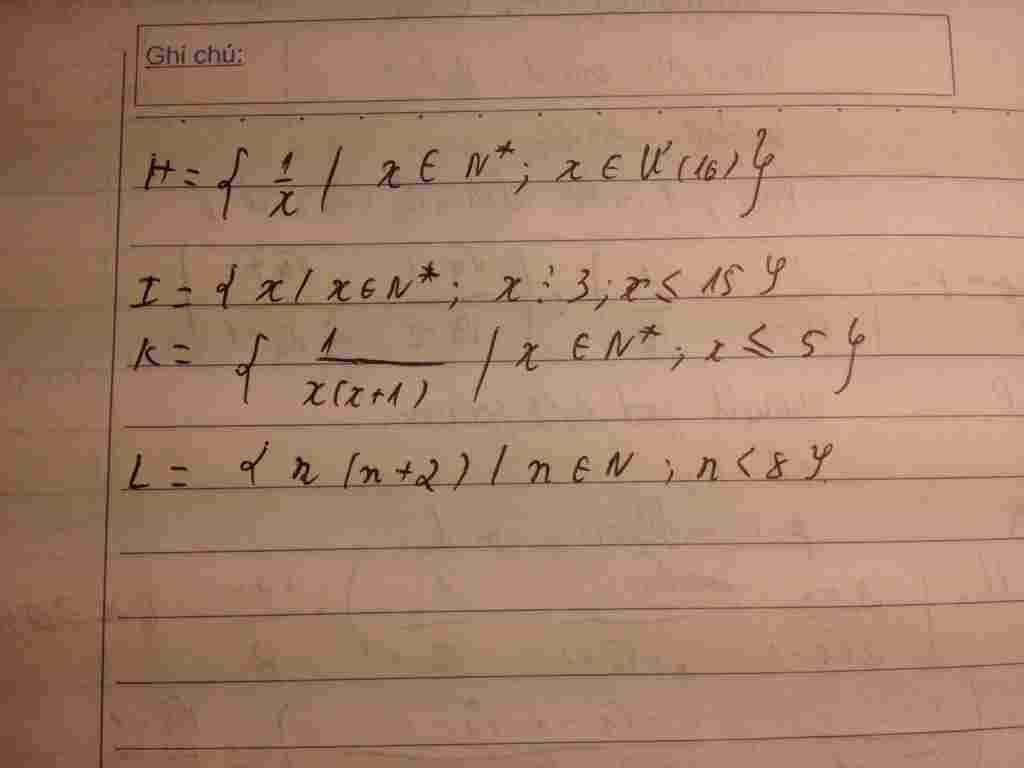 Ghi chú:
H = { 1/x / x ∈ N*; x ∈ Ư(16) }
I = { x / x ∈ N*; x ⋮ 3; x ≤ 15 }
K = { 1/x(x+1) / x ∈ N*; x ≤ 5 }
L = { n (n+2) / n ∈ N; n < 8 }